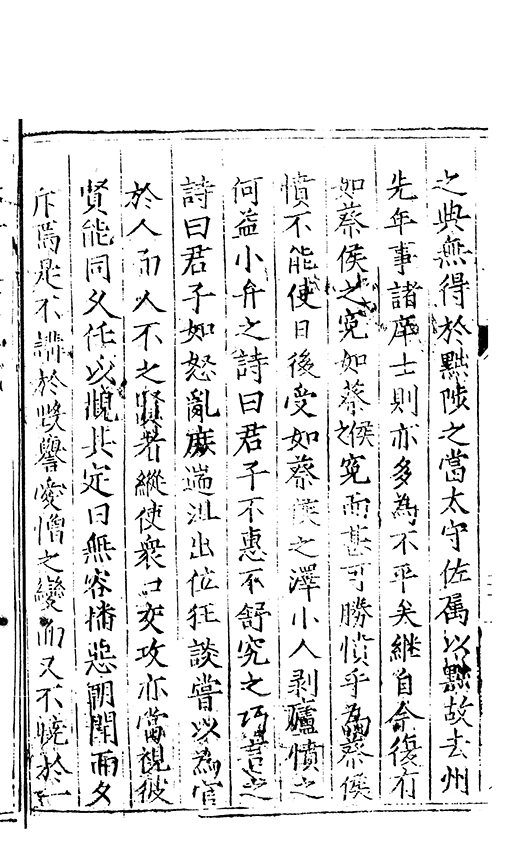 之典無得於黜陟之當太守佐属以黜故去州
先年事諸庠士則亦多為不平矣継自今復有
如蔡侯之寃如蔡侯之寃而甚可勝憤乎為蔡侯
憤不能使日後受如蔡侯之澤小人剥廬憤之
何益小弁之詩曰君子不惠不舒究之巧言之
詩曰君子如怒亂庶遄沮出位狂談嘗以為官
於人而人不之賢者縱使衆口交攻亦當視彼
賢能同久任以覘其定曰無容播惡朝聞而夕
斥焉是不誹於毀譽愛憎之變而又不恍於一